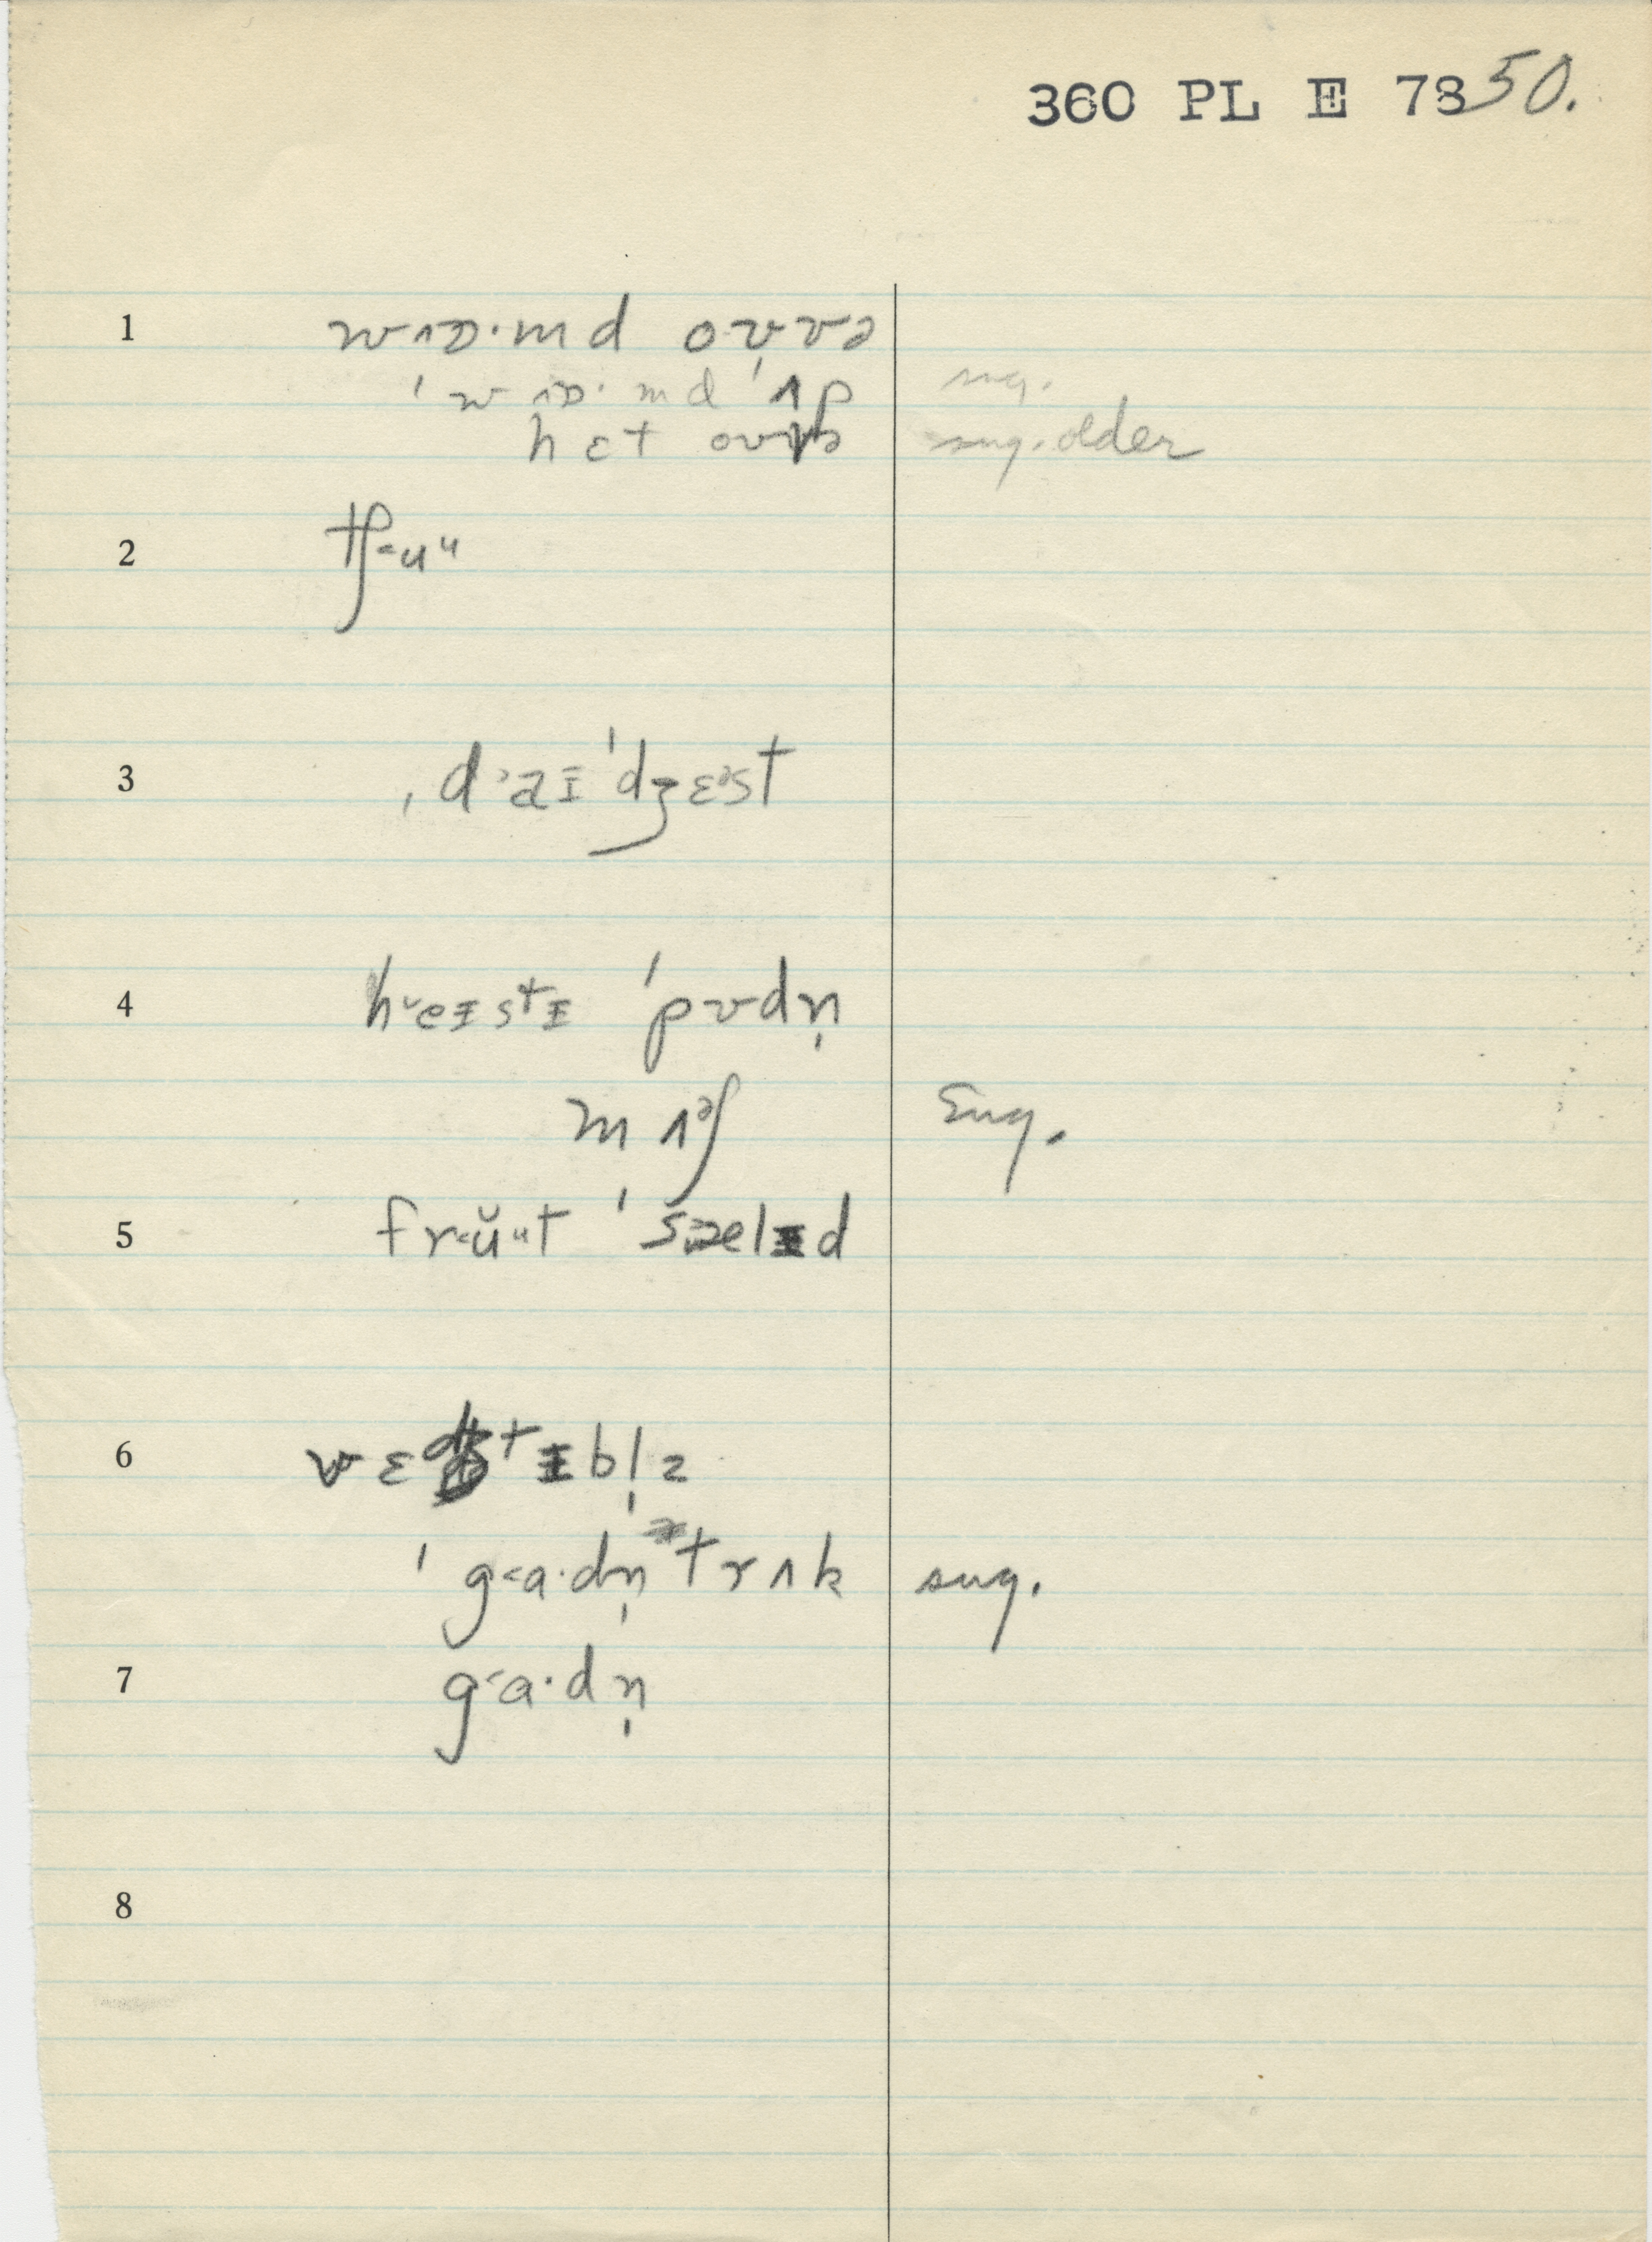 360 PL E 7850.
1 wɔ˄ɒ·md oʊvə
ˈwɔ˄ɒ·md ˈʌp sug.
hɛt oʊvɚ sug. older
2 tʃ˂uᵘ
3 ˌd˃aɪˈdʒɛᵊst
4 h˅eɪstɪ ˈpʊdn̩
mʌᵊʃ Sug.
5 fr˂ŭᵘt ˈsælɪd
6 vɛdʒtɪbl̩z
ˈg˂a·dn̩ trʌk sug.
7 g˂a·dn̩
8